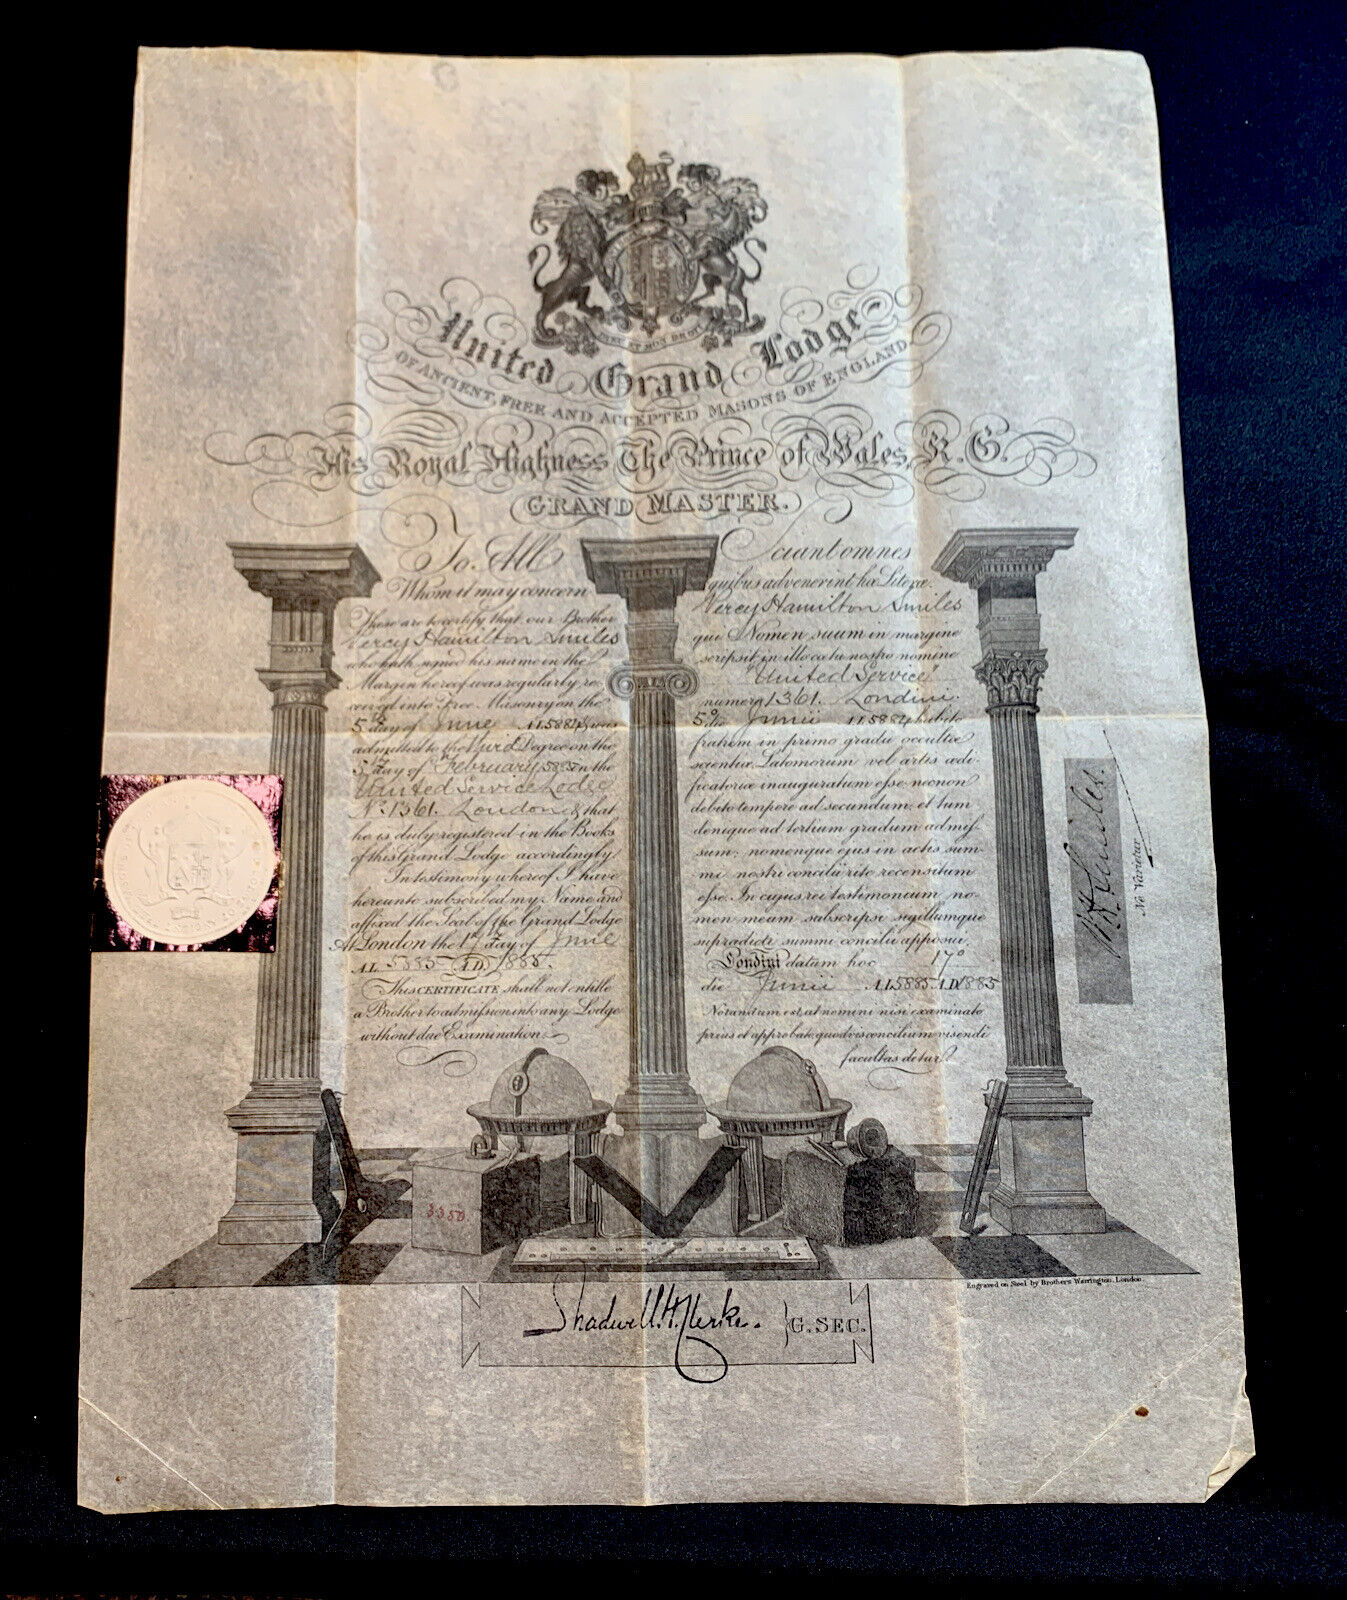 DIEU ET MON DROIT
United Grand Lodge
OF ANCIENT, FREE AND ACCEPTED MASONS OF ENGLAND
His Royal Highness The Prince of Wales, K. G.
GRAND MASTER.
To All
Whom it may concern
These are to certify that our Brother
Percy Hamilton Smiles
who hath signed his name in the
Margin hereof was regularly re-
ceived into Free Masonry on the
5th day of June A.L. 5884 & was
admitted to the Third Degree on the
5th day of February 5885 in the
United Service Lodge
No. 1361. London & that
he is duly registered in the Books
of this Grand Lodge accordingly
In testimony whereof I have
hereunto subscribed my Name and
affixed the Seal of the Grand Lodge
At London the 17th day of June
A.L. 5885 A.D. 1885.
This CERTIFICATE shall not entitle
a Brother to admission into any Lodge
without due Examination
Sciant omnes
quibus advenerint hæ Literæ.
Percy Hamilton Smiles
qui Nomen suum in margine
scripsit in illo cætu nostro nomine
"United Service"
numero 1361. Londini.
5o die Junii A.L. 5884 habito
fratrem in primo gradu occultæ
scientiæ Latomorum vel artis ædi-
ficatoriæ inauguratum esse necnon
debito tempore ad secundum, et tum
denique ad tertium gradum admis-
sum: nomenque ejus in actis sum-
mi nostri concilii rite recensitum
esse. In cujus rei testimonium no-
men meum subscripsi sigillumque
supradicti summi concilii apposui.
Londini datum hoc 17o
die Junii A.L. 5885 A.D. 1885
Notandum est, at nemini nisi examinato
prius et approbato, quodvis concilium visendi
facultas detur
Smiles.
Ne Varietur
Engraved on Steel by Brothers Warrington, London.
Shadwell H. Clerke. G. SEC.